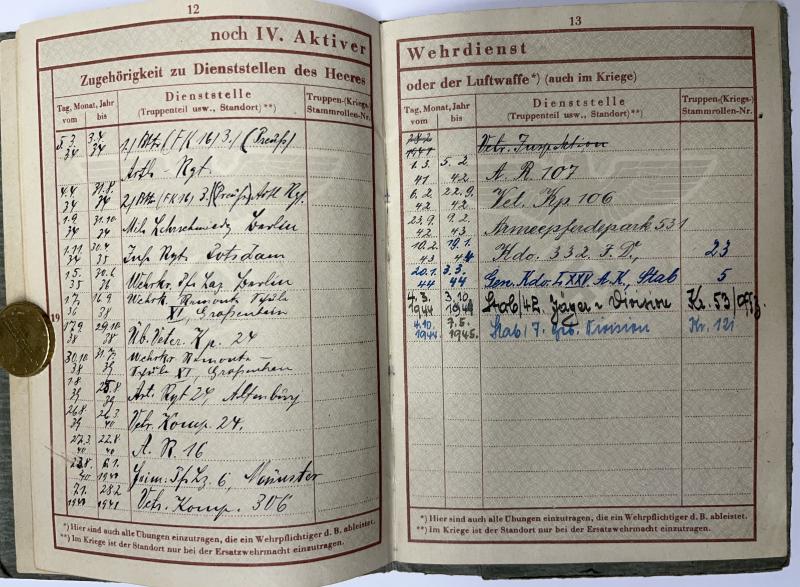 12
noch IV. Aktiver
Zugehörigkeit zu Dienststellen des Heeres
Tag, Monat, Jahr
vom bis
Dienststelle
(Truppenteil usw., Standort)**)
Truppen-(Kriegs-)
Stammrollen-Nr.
5.3. 34 3.4. 34 2./ (F.K. 16) 3./ (Preuß)
Artl. - Rgt.
4.4. 34 31.8. 34 2./ (FK 16) 3. (Preuß) Artl Rgt.
1.9. 34 31.10. 34 Mil. Lehrschmiede Berlin
1.11. 34 30.4. 35 Inf. Rgt. Potsdam
Berlin
Remonte Schule
XI, Großenhain
17.9. 38 29.10. 38 Üb. Veter. Kp. 24
Wehrkr. Remonte-
Schule XI, Großenhain
Art. Rgt 24 Altenburg
26.8. 39 26.3. 40 Vetr. Komp. 24.
27.3. 40 22.8. 40 A. R. 16
23.8. 40 6.1. 1941 Heim. Pf. Lz. 6, Münster
7.1. 1941 28.2. 1941 Vetr. Komp. 306
19
*) Hier sind auch alle Übungen einzutragen, die ein Wehrpflichtiger d. B. ableistet.
**) Im Kriege ist der Standort nur bei der Ersatzwehrmacht einzutragen.
13
Wehrdienst
oder der Luftwaffe*) (auch im Kriege)
Tag, Monat, Jahr
vom bis
Dienststelle
(Truppenteil usw., Standort)**)
Truppen-(Kriegs-)
Stammrollen-Nr.
28.2. 1941 Vetr. Inspektion
1.3. 41 5.2. 42 A. R. 107
6.2. 42 22.9. 42 Vet. Kp 106
23.9. 42 9.2. 43 Armeepferdepark 531
10.2. 43 19.1. 44 Kdo. 332 F.D., 23
20.1. 44 3.3. 44 Gen. Kdo. LXXV. A.K., Stab 5
4.3. 1944 3.10. 1944 Stab/42. Jäger - Division Kr. 53/
4.10. 1944 7.5. 1945. Stab/7. Geb. Division Kr. 121
*) Hier sind auch alle Übungen einzutragen, die ein Wehrpflichtiger d. B. ableistet.
**) Im Kriege ist der Standort nur bei der Ersatzwehrmacht einzutragen.